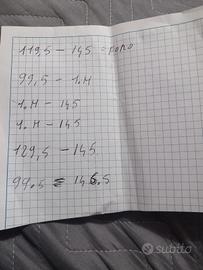 119,5 - 145 = роро
99,5 - 1.н
1.н - 145
1.н - 145
129,5 - 145
99.5 = 146.5
subito